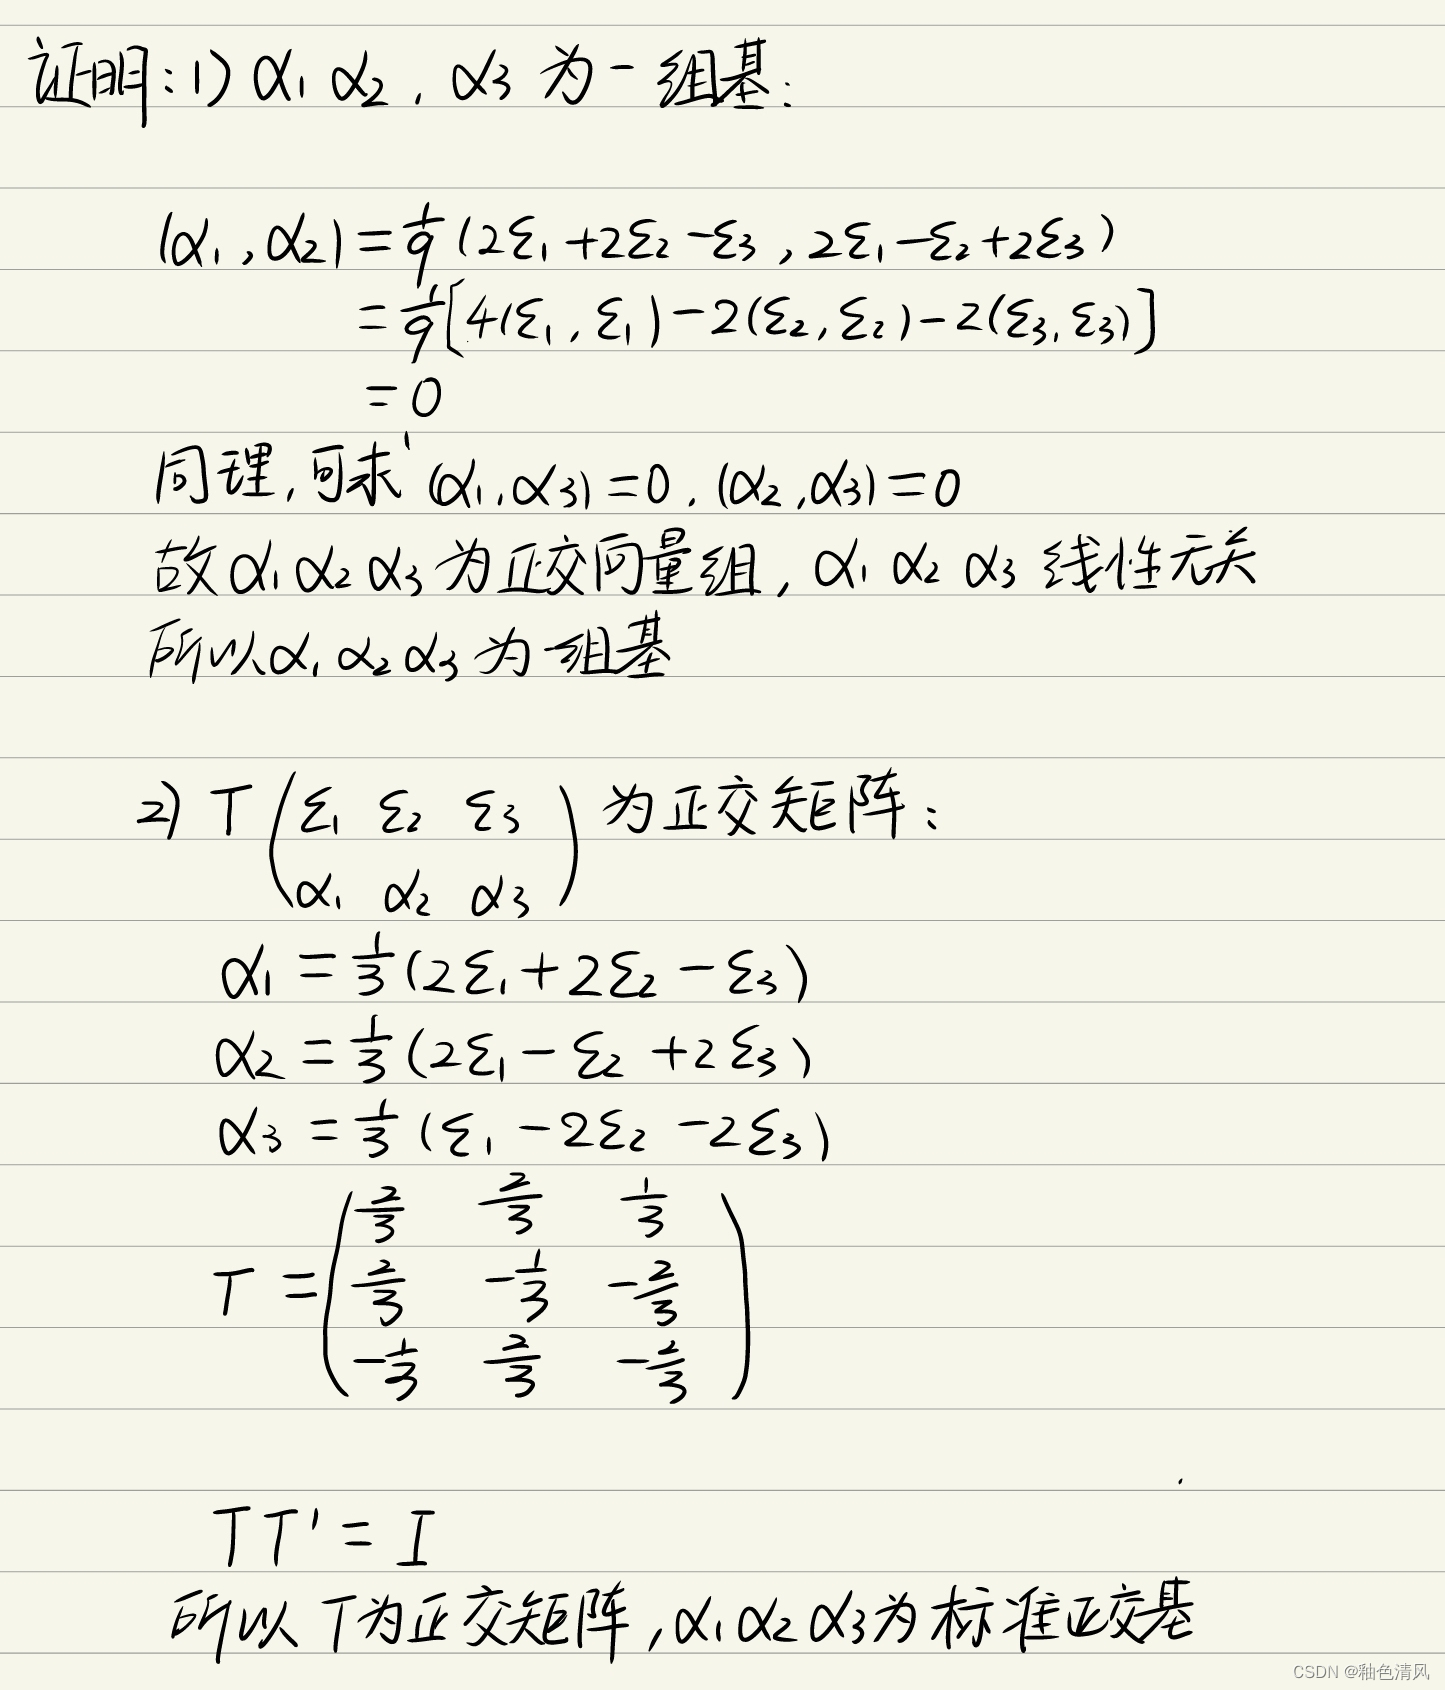 证明:1) α₁ α₂, α₃ 为一组基:
(α₁,α₂)=1/9(2ε₁+2ε₂-ε₃,2ε₁-ε₂+2ε₃)
=1/9[4(ε₁,ε₁)-2(ε₂,ε₂)-2(ε₃,ε₃)]
=0
同理,可求(α₁,α₃)=0,(α₂,α₃)=0
故α₁α₂α₃为正交向量组,α₁ α₂ α₃ 线性无关
所以α₁α₂α₃为一组基
2) T(ε₁ ε₂ ε₃
α₁ α₂ α₃) 为正交矩阵:
α₁=1/3(2ε₁+2ε₂-ε₃)
α₂=1/3(2ε₁-ε₂+2ε₃)
α₃=1/3(ε₁-2ε₂-2ε₃)
T=(2/3 2/3 1/3
2/3 -1/3 -2/3
-1/3 2/3 -2/3)
TT'=I
所以T为正交矩阵,α₁α₂α₃为标准正交基
CSDN @釉色清风